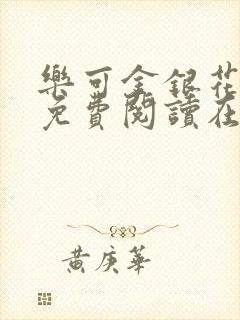 樂可金銀花
免費閱讀在
黃庚華